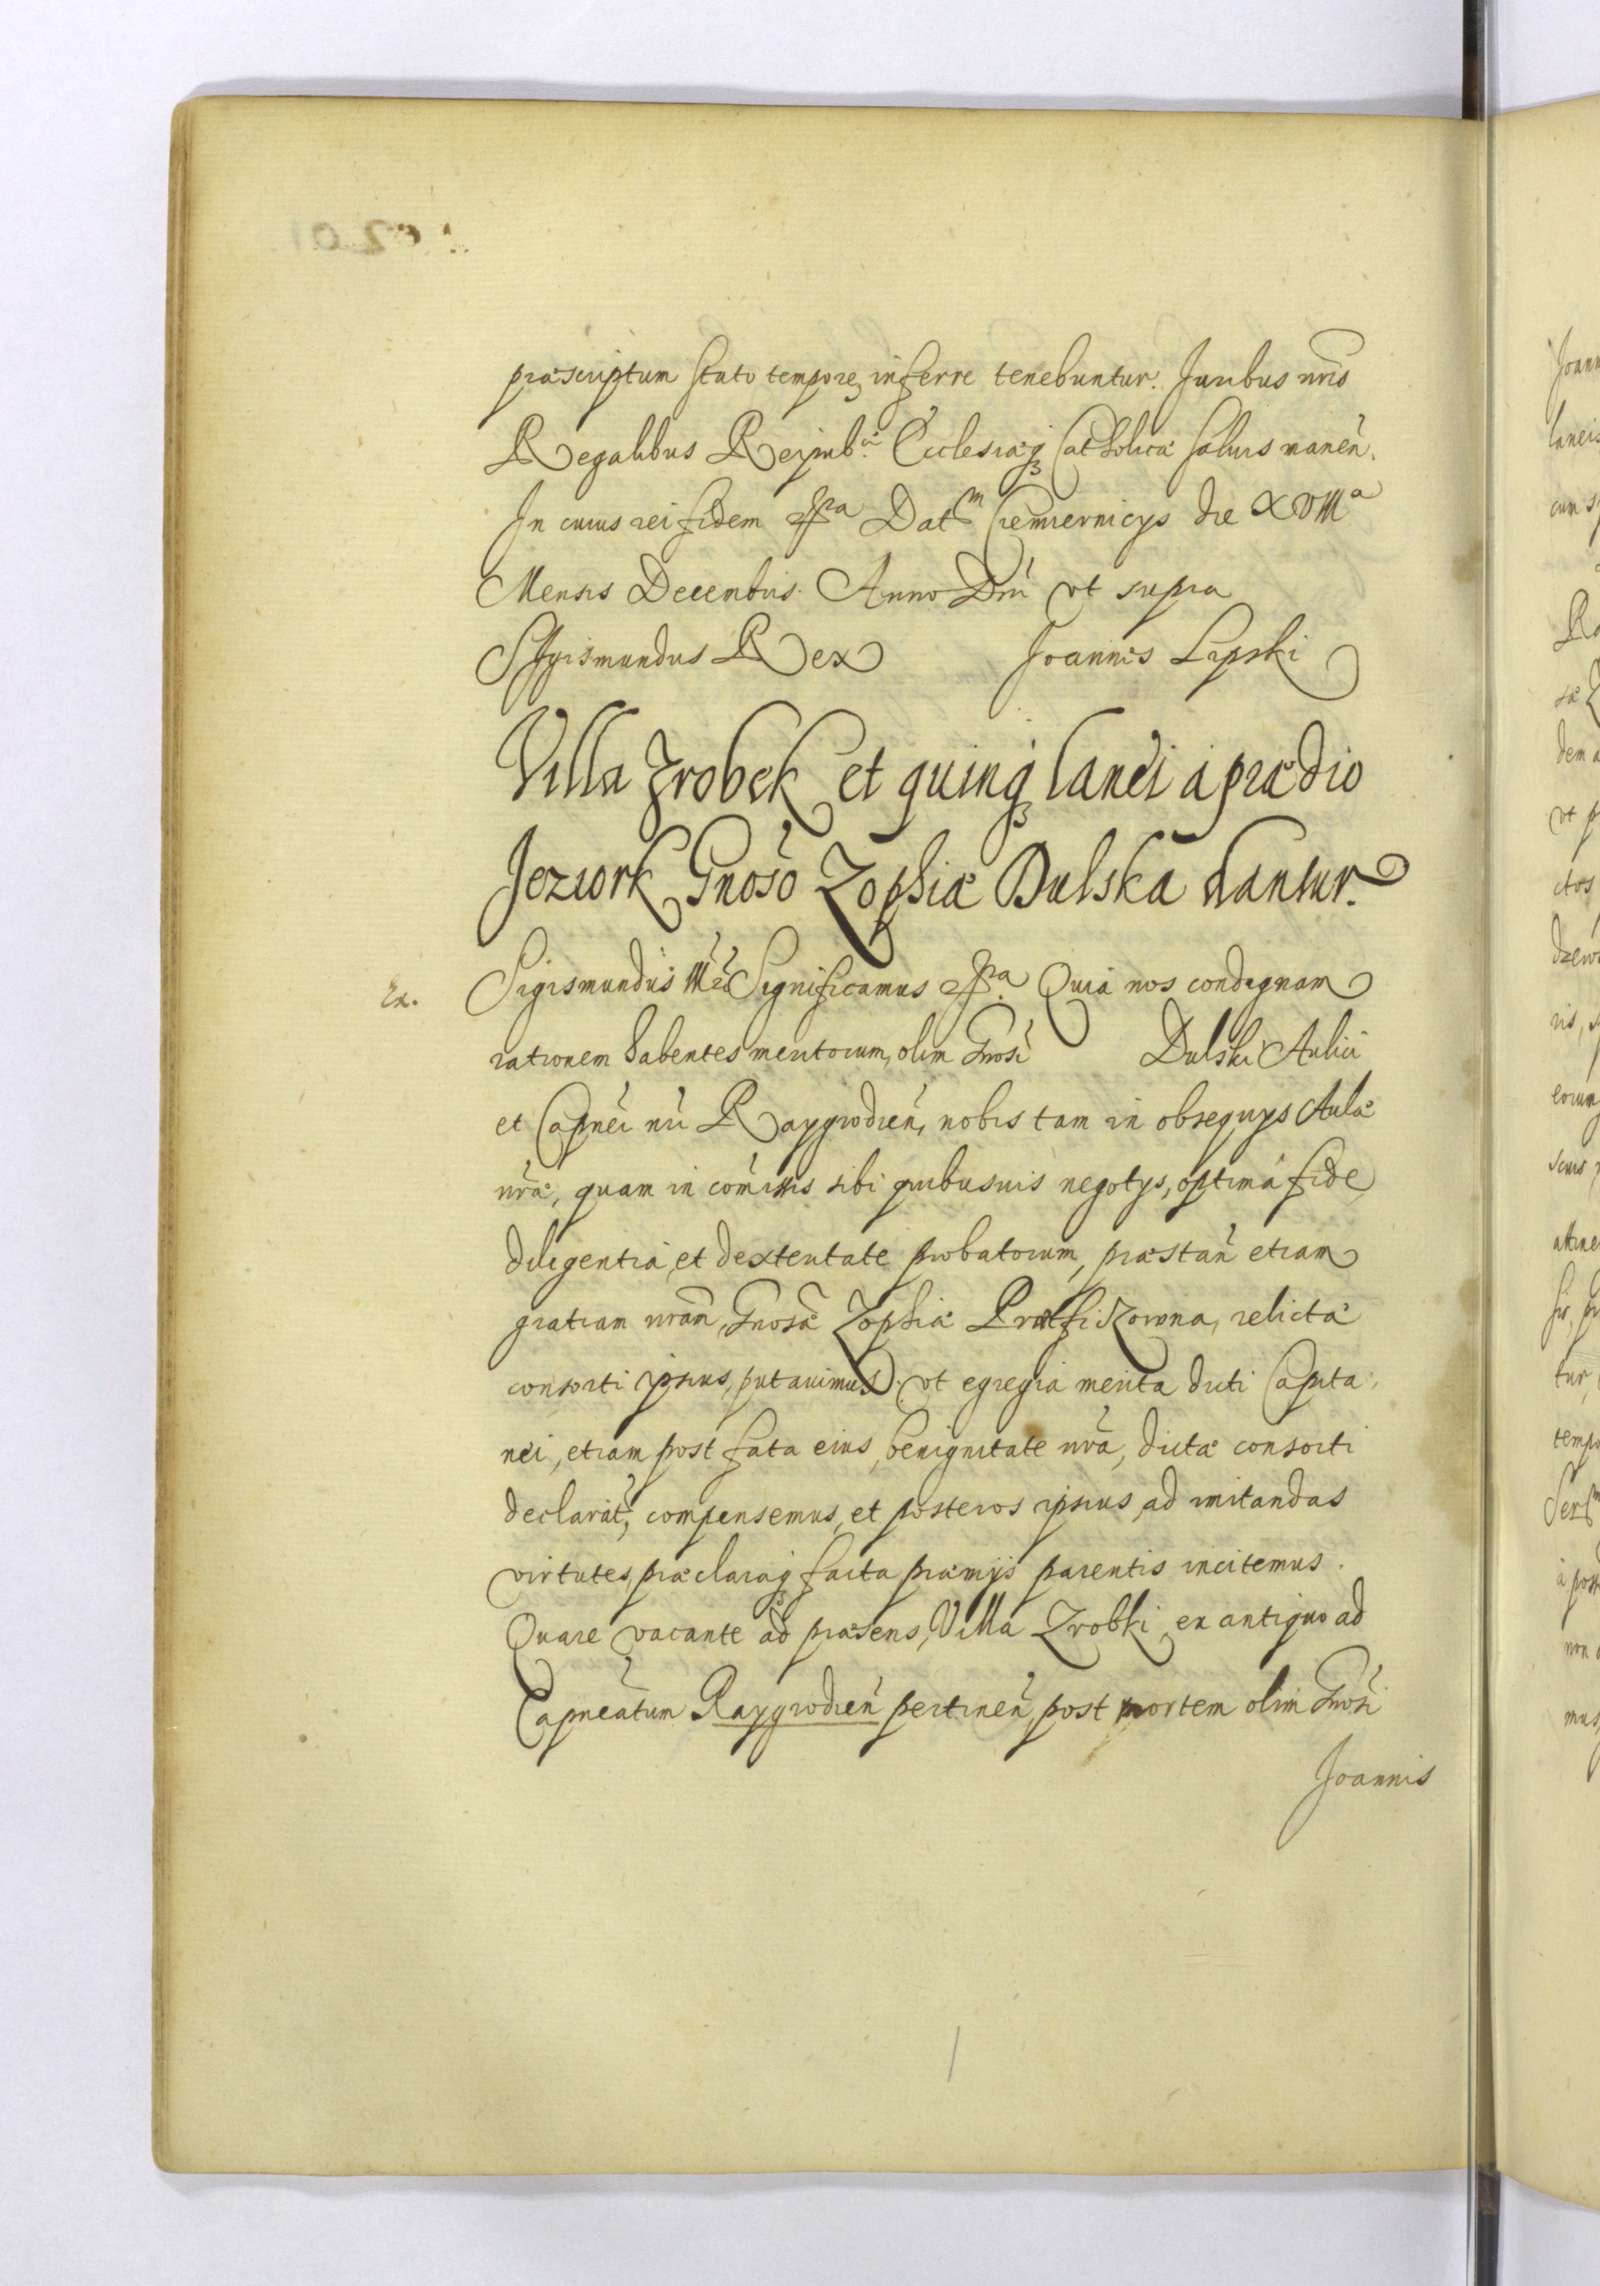 præscriptum stato tempore, inferre tenebuntur. Juribus nris
Regalibus Reipub.cæ Ecclesiæq Catholicæ saluis manen.
In cuius rei fidem Datm die XVIIIa
Mensis Decembris. Anno Dni vt supra
Sigismundus Rex Joannis Lipski
Villa Zrobek et quinq lanei a prædio
Jeziork Gnoso Zophiæ Dulska dantur.
Ex. Sigismundus Significamus Quia nos condignam
rationem habentes meritorum, olim Gnosi Dulski Aulici
et Capnei nri Raygrodien, nobis tam in obsequys Aulæ
nræ, quam in comissis sibi quibusuis negotys, optima fide
diligentia, et dexteritate probatorum, præstan etiam
gratiam nram, Gnosæ Zophiæ relictæ
consorti ipsius, putauimus. vt egregia merita dicti Capita
nei, etiam post fata eius, benignitate nra, dictæ consorti
declarat, compensemus, et posteros ipsius, ad imitandas
virtutes, præclaraq facta præmijs parentis incitemus.
Quare vacante ad præsens, Villa Zrobki, ex antiquo ad
Capneatum Raygrodien pertinen, post mortem olim Gnosi
Joannis